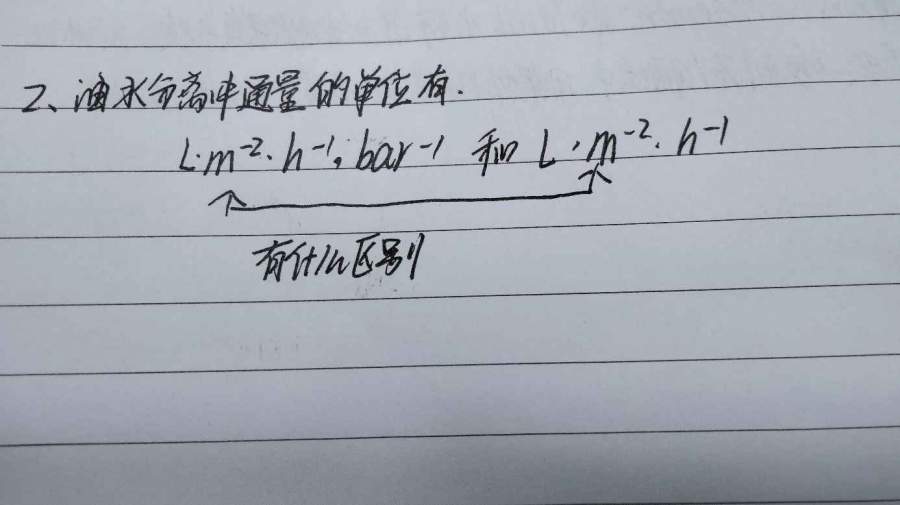 2、油水分离中通量的单位有.
L·m⁻²·h⁻¹·bar⁻¹ 和 L·m⁻²·h⁻¹
有什么区别